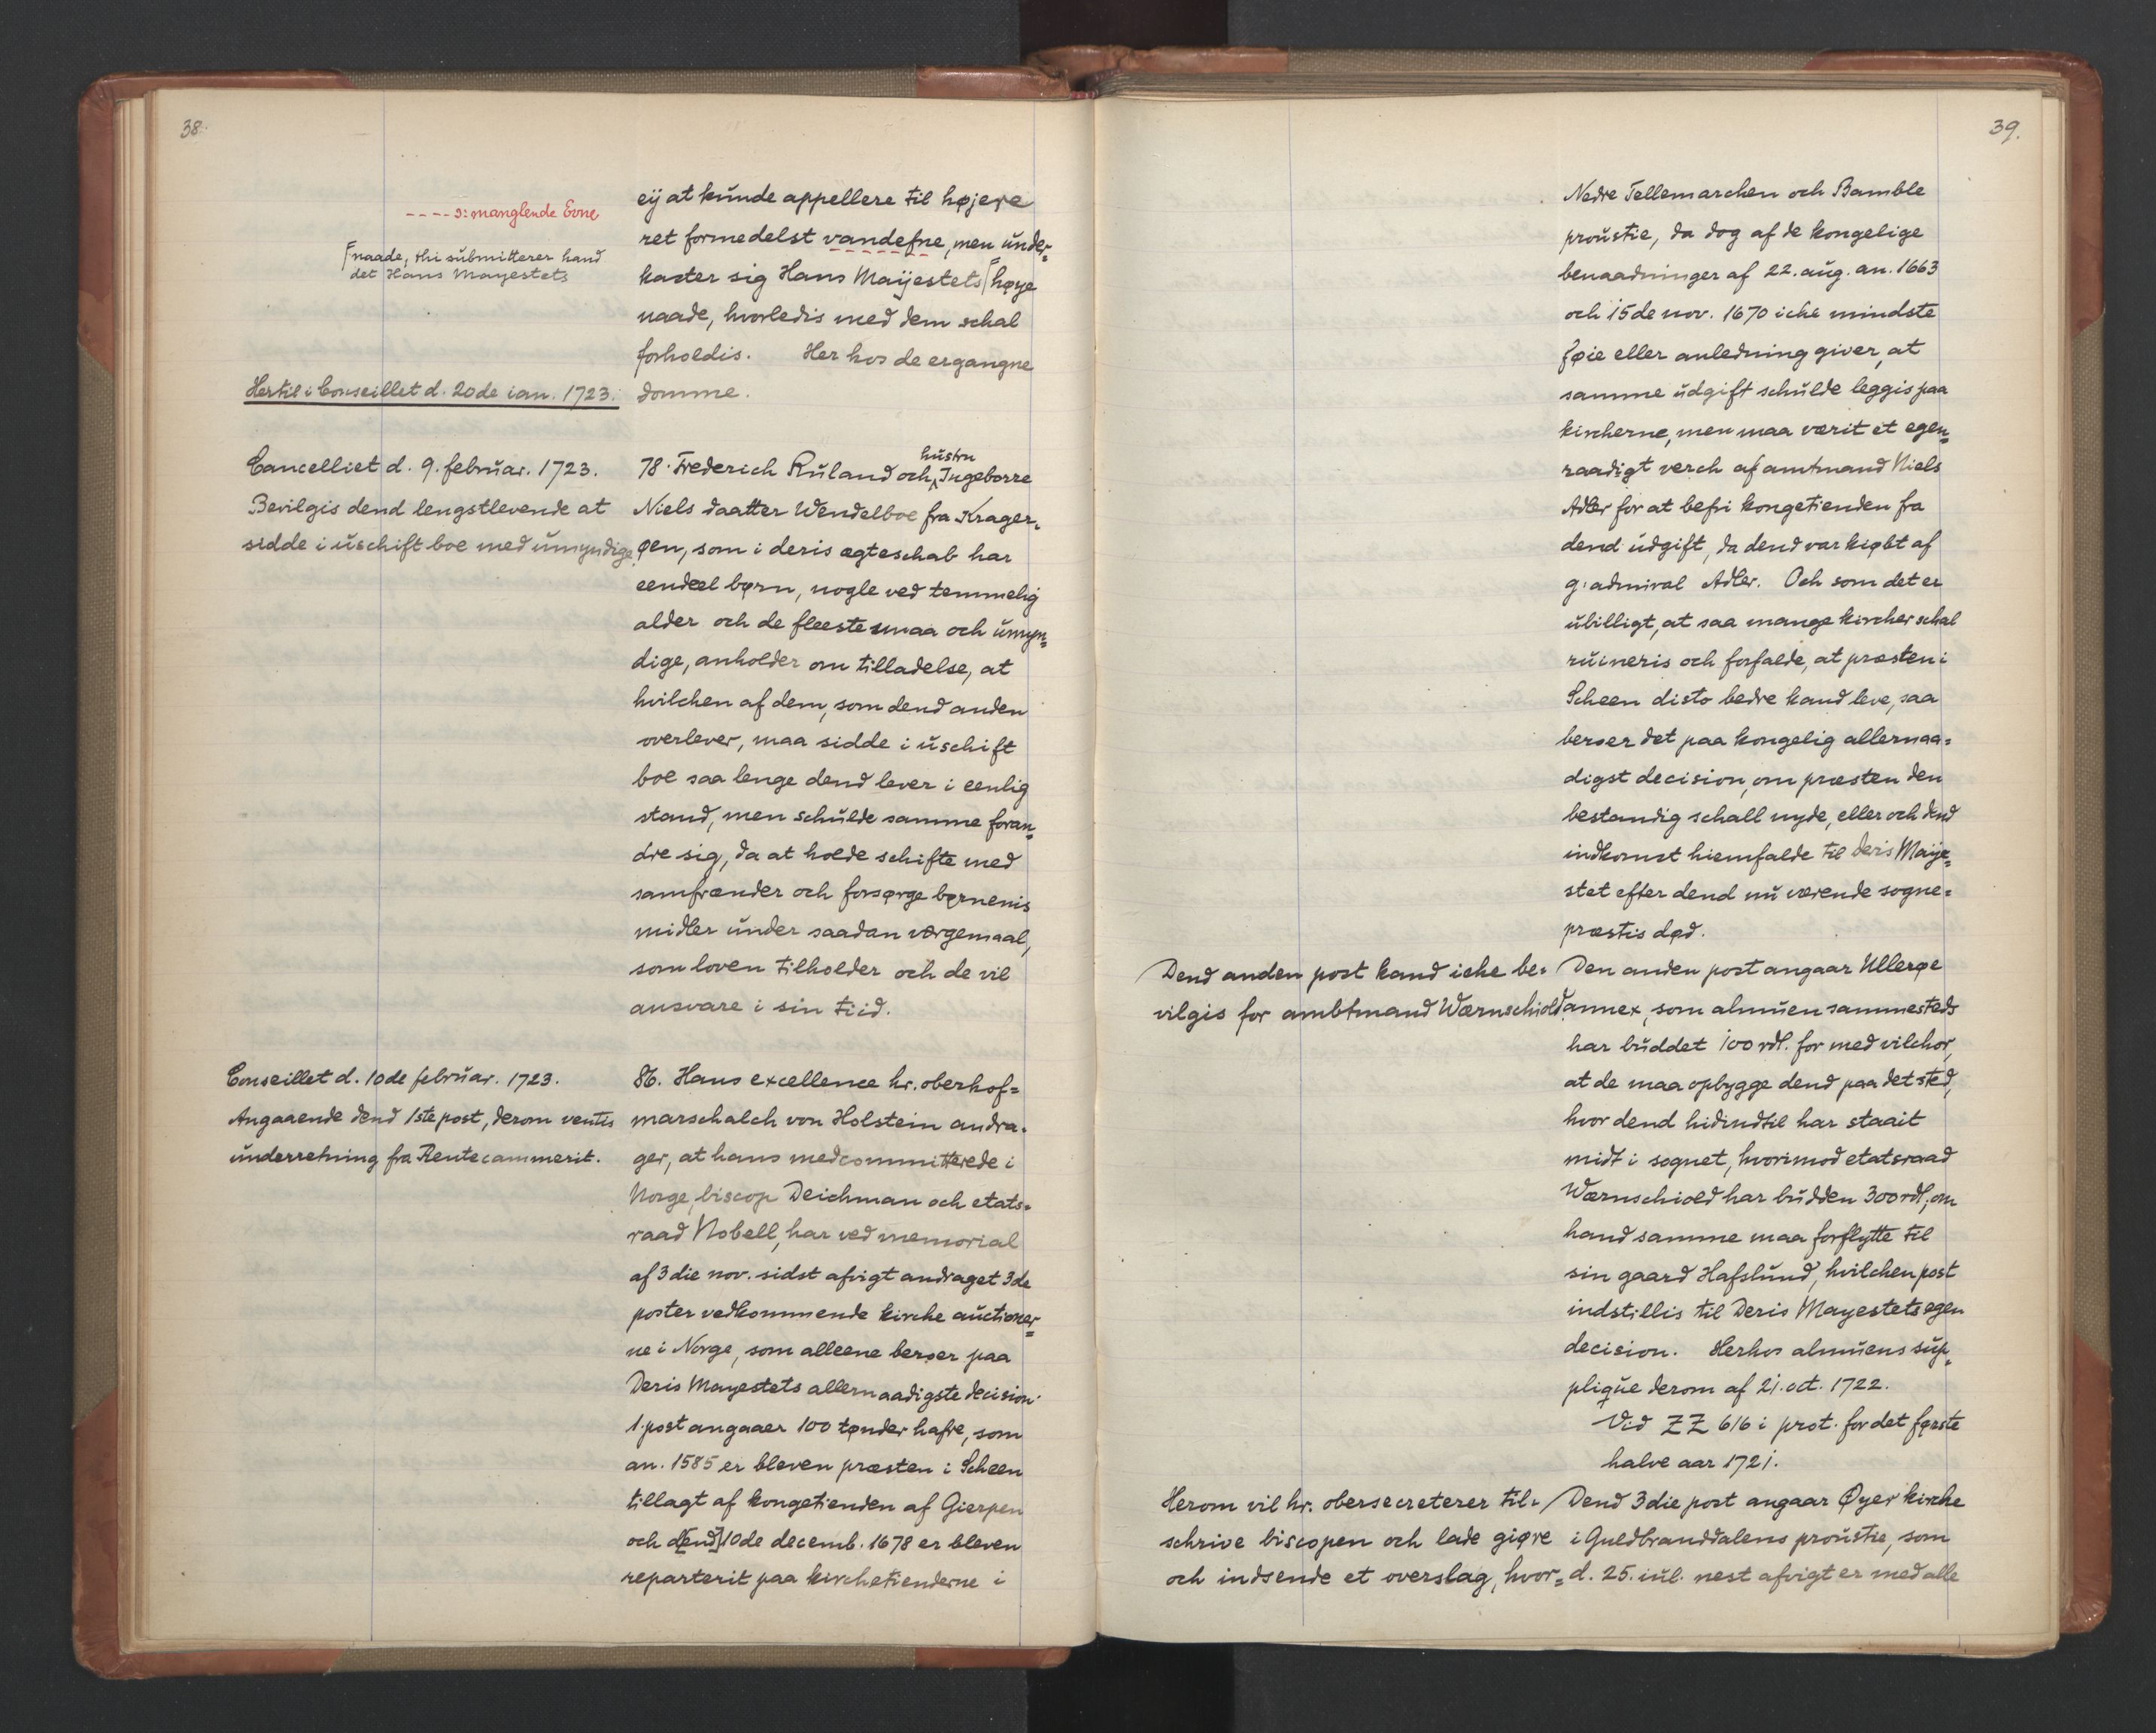 38.
---- ɔ: manglende Evne
⌈naade, thi submitterer hand
det Hans Mayestets
Hertil i Conseillet d. 20de ian. 1723.
Cancelliet d. 9. februar. 1723.
Bevilgis dend lengstlevende at
sidde i uschift boe med umyndige.
Conseillet d. 10de februar. 1723.
Angaaende dend 1ste post, derom ventes
underretning fra Rentecammerit.
eÿ at kunde appellere til højere
ret formedelst vandefne, men under=
kaster sig Hans Maÿestets ⌈høye
naade, hvorledis med dem schal
forholdis. Her hos de ergangne
domme.
78. Frederich Ruland och hustru Ingeborre
Niels daatter Wendelboe fra Krager=
øen, som i deris ægteschab har
eendeel børn, nogle ved temmelig
alder och de fleeste smaa och umyn=
dige, anholder om tilladelse, at
hvilchen af dem, som dend anden
overlever, maa sidde i uschift
boe saa lenge dend lever i eenlig
stand, men schulde samme foran=
dre sig, da at holde schifte med
samfrænder och forsørge børnenis
midler under saadan værgemaal,
som loven tilholder och de vil
ansvare i sin tiid.
86. Hans excellence hr. oberhof=
marschalch von Holstein andra=
ger, at hans medcommitterede i
Norge, biscop Deichman och etats=
raad Nobell, har ved memorial
af 3die nov. sidst afvigt andraget 3de
poster vedkommende kirche auctioner=
ne i Norge, som alleene beroer paa
Deris Mayestets allernaadigste decision.
1. post angaaer 100 tønder hafre, som
an. 1585 er bleven præsten i Scheen
tillagt af kongetienden af Gierpen
och d[end] 10de decemb. 1678 er bleven
reparterit paa kirchetienderne i
39.
Nedre Tellemarchen och Bamble
proustie, da dog af de kongelige
benaadninger af 22. aug. an. 1663
och 15de nov. 1670 iche mindste
føie eller anledning giver, at
samme udgift schulde leggis paa
kircherne, men maa værit et egen=
raadigt verch af amtmand Niels
Adler for at befri kongetienden fra
dend udgift, da dend var kiøbt af
g: admiral Adler. Och som det er
ubilligt, at saa mange kircher schal
ruineris och forfalde, at præsten i
Scheen disto bedre kand leve, saa
beroer det paa kongelig allernaa=
digst decision, om præsten den
bestandig schall nyde, eller och dend
indkomst hiemfalde til Deris Maije=
stet efter dend nu værende sogne=
præstis død.
Dend anden post kand iche be=
vilgis for ambtmand Wærnschiold.
Den anden post angaar Ullerøe
annex, som almuen sammesteds
har buddet 100 rdl. for med vilchor,
at de maa opbygge dend paa det sted,
hvor dend hidindtil har staait
midt i sognet, hvorimod etatsraad
Wærnschiold har budden 300 rdl., om
hand samme maa forflytte til
sin gaard Hafslund, hvilchen post
indstillis til Deris Mayestets egen
decision. Herhos almuens sup=
plique derom af 21. oct. 1722.
Vid ZZ 616 i prot. for det første
halve aar 1721.
Herom vil hr. obersecreterer til=
schrive biscopen och lade giøre
och indsende et overslag, hvor=
Dend 3die post angaar Øyer kirche
i Guldbranddalens proustie, som
d. 25. iul. nest afvigt er med alle